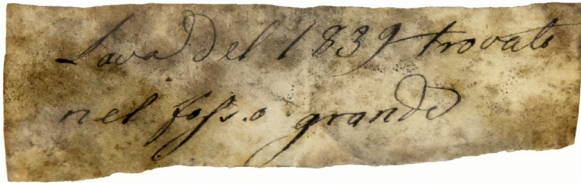 Lava del 1839 trovata
nel fosso grande